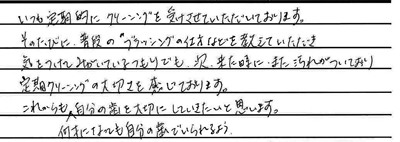 いつも定期的にクリーニングを受けさせていただいております。
そのたびに、普段のブラッシングの仕方などを教えていただき
気をつけてみがいているつもりでも、次、来た時に、また汚れがついており
定期クリーニングの大切さを感じております。
これからも、自分の歯を大切にしていきたいと思います。
何才になっても自分の歯でいられるよう。